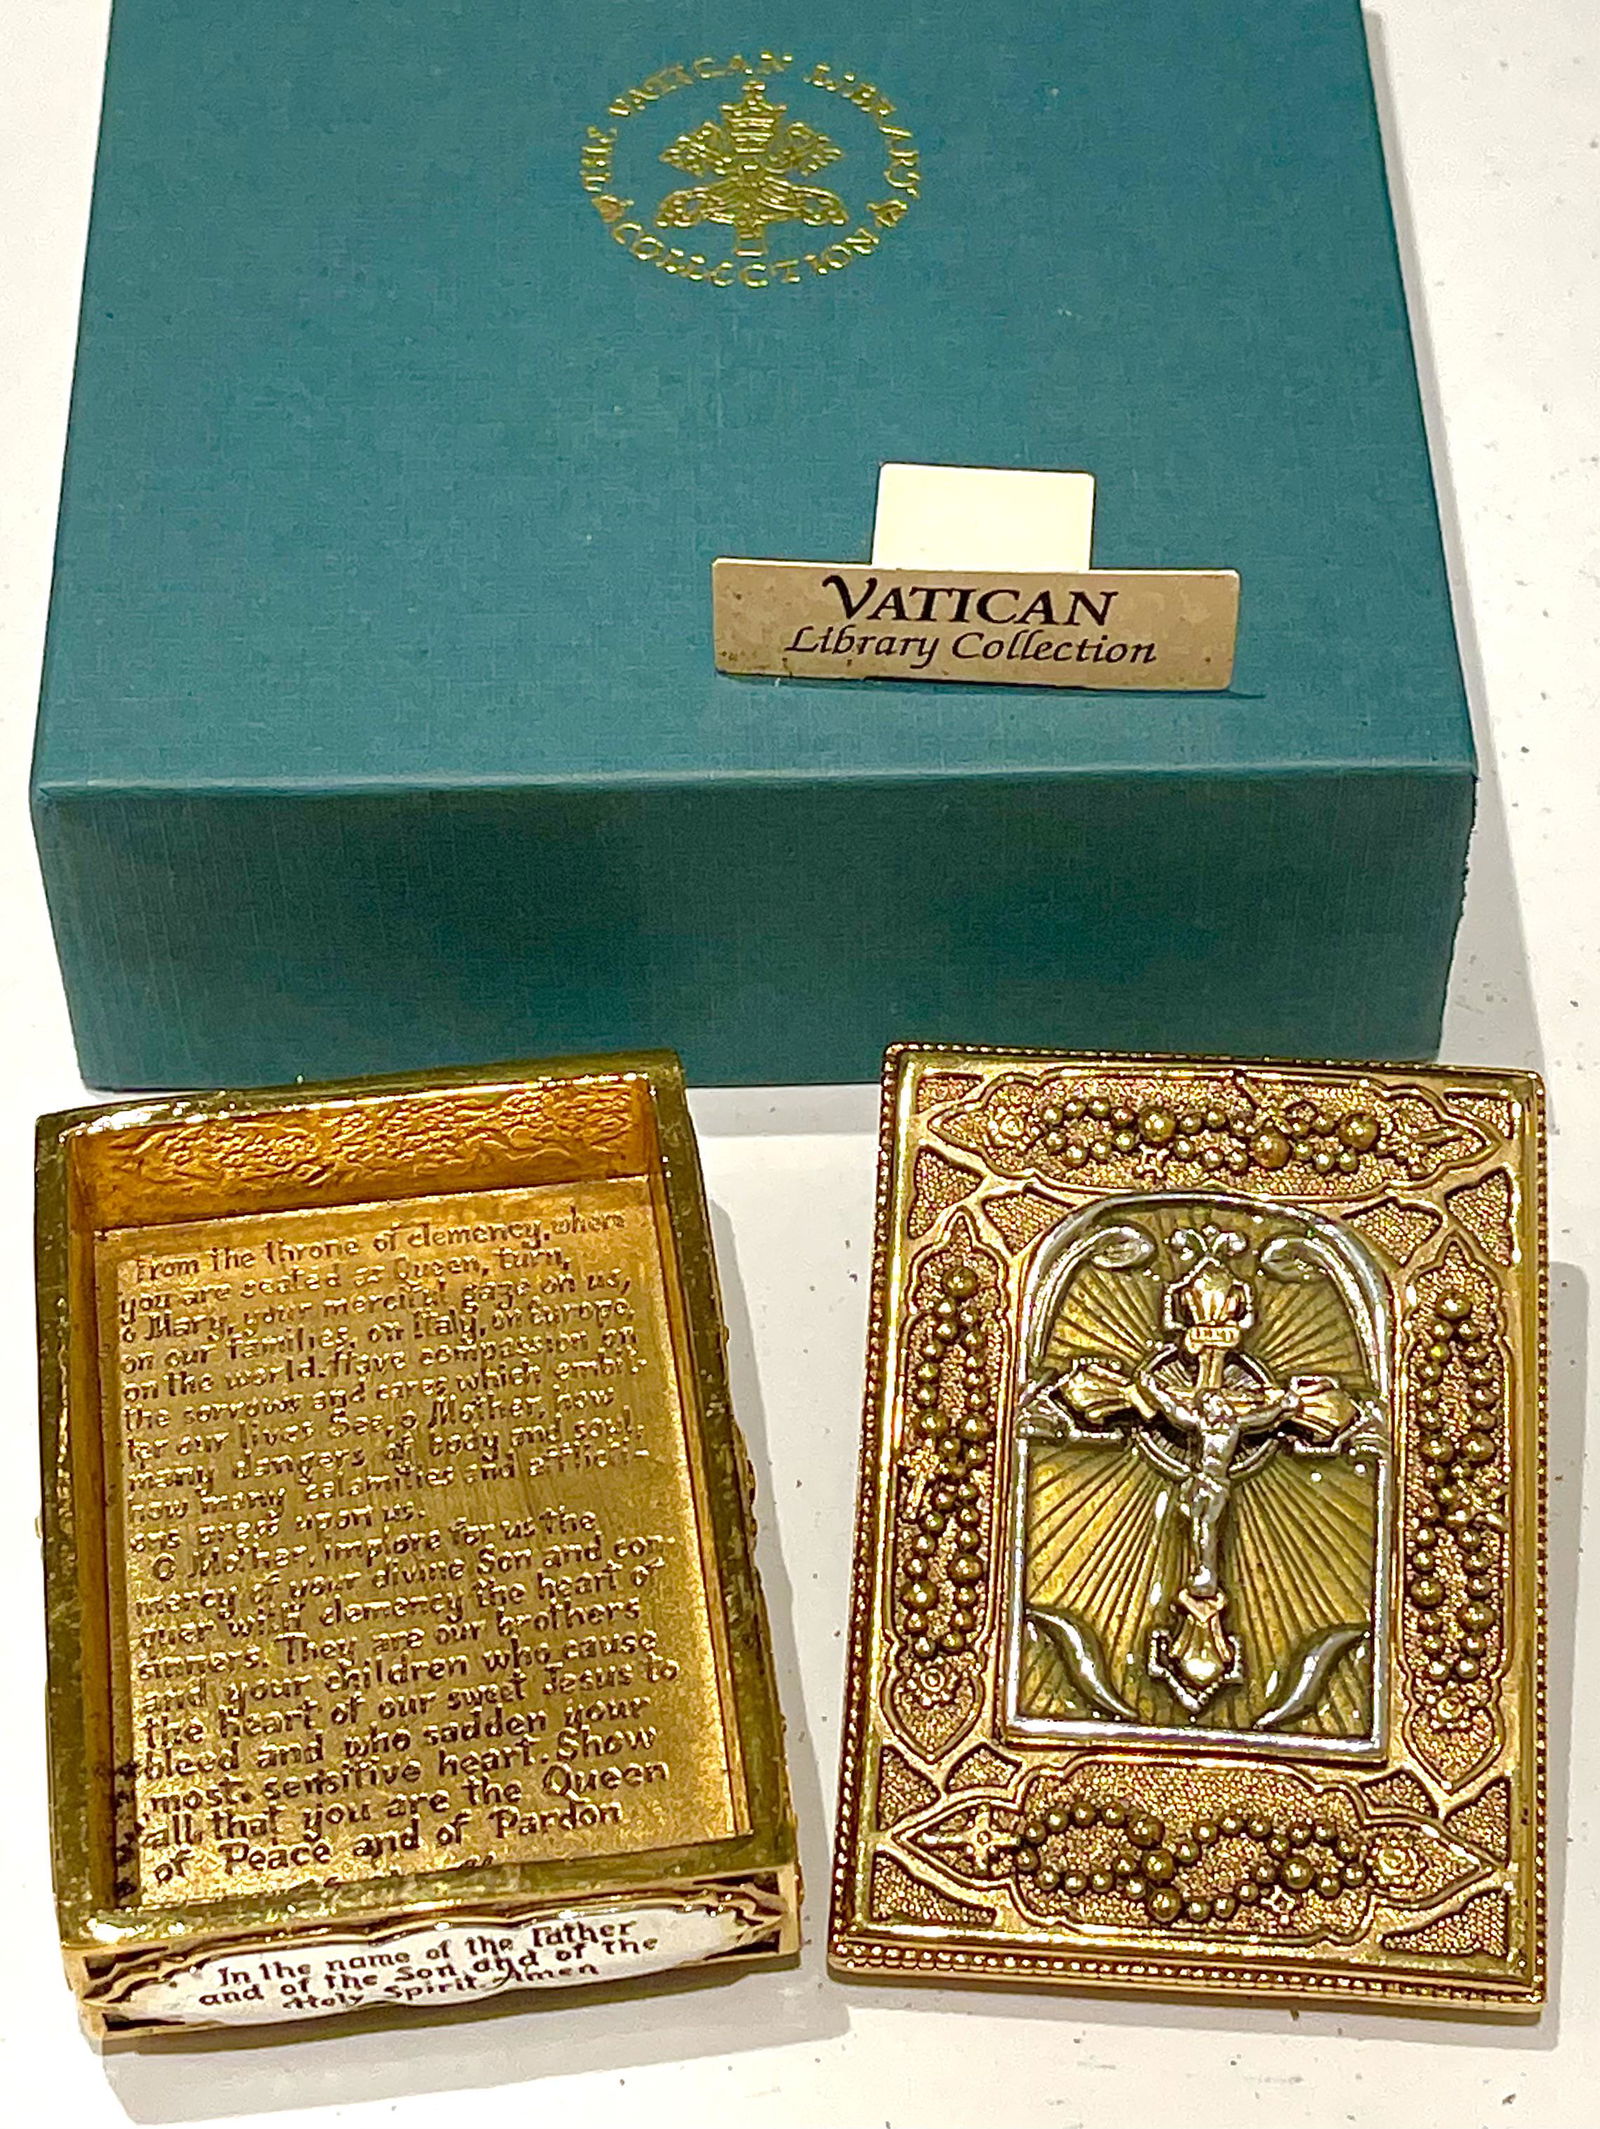 THE VATICAN LIBRARY
COLLECTION
VATICAN
Library Collection
From the throne of clemency, where
you are seated as Queen, turn,
o Mary, your merciful gaze on us,
on our families, on Italy, on Europe,
on the world. Have compassion on
the sorrows and cares which embit-
ter our lives See, o Mother, how
many dangers of body and soul,
how many calamities and afflicti-
ons press upon us.
O Mother, implore for us the
mercy of your divine Son and con-
quer with clemency the heart of
sinners. They are our brothers
and your children who cause
the heart of our sweet Jesus to
bleed and who sadden your
most sensitive heart. Show
all that you are the Queen
of Peace and of Pardon
In the name of the Father
and of the Son and of the
Holy Spirit Amen